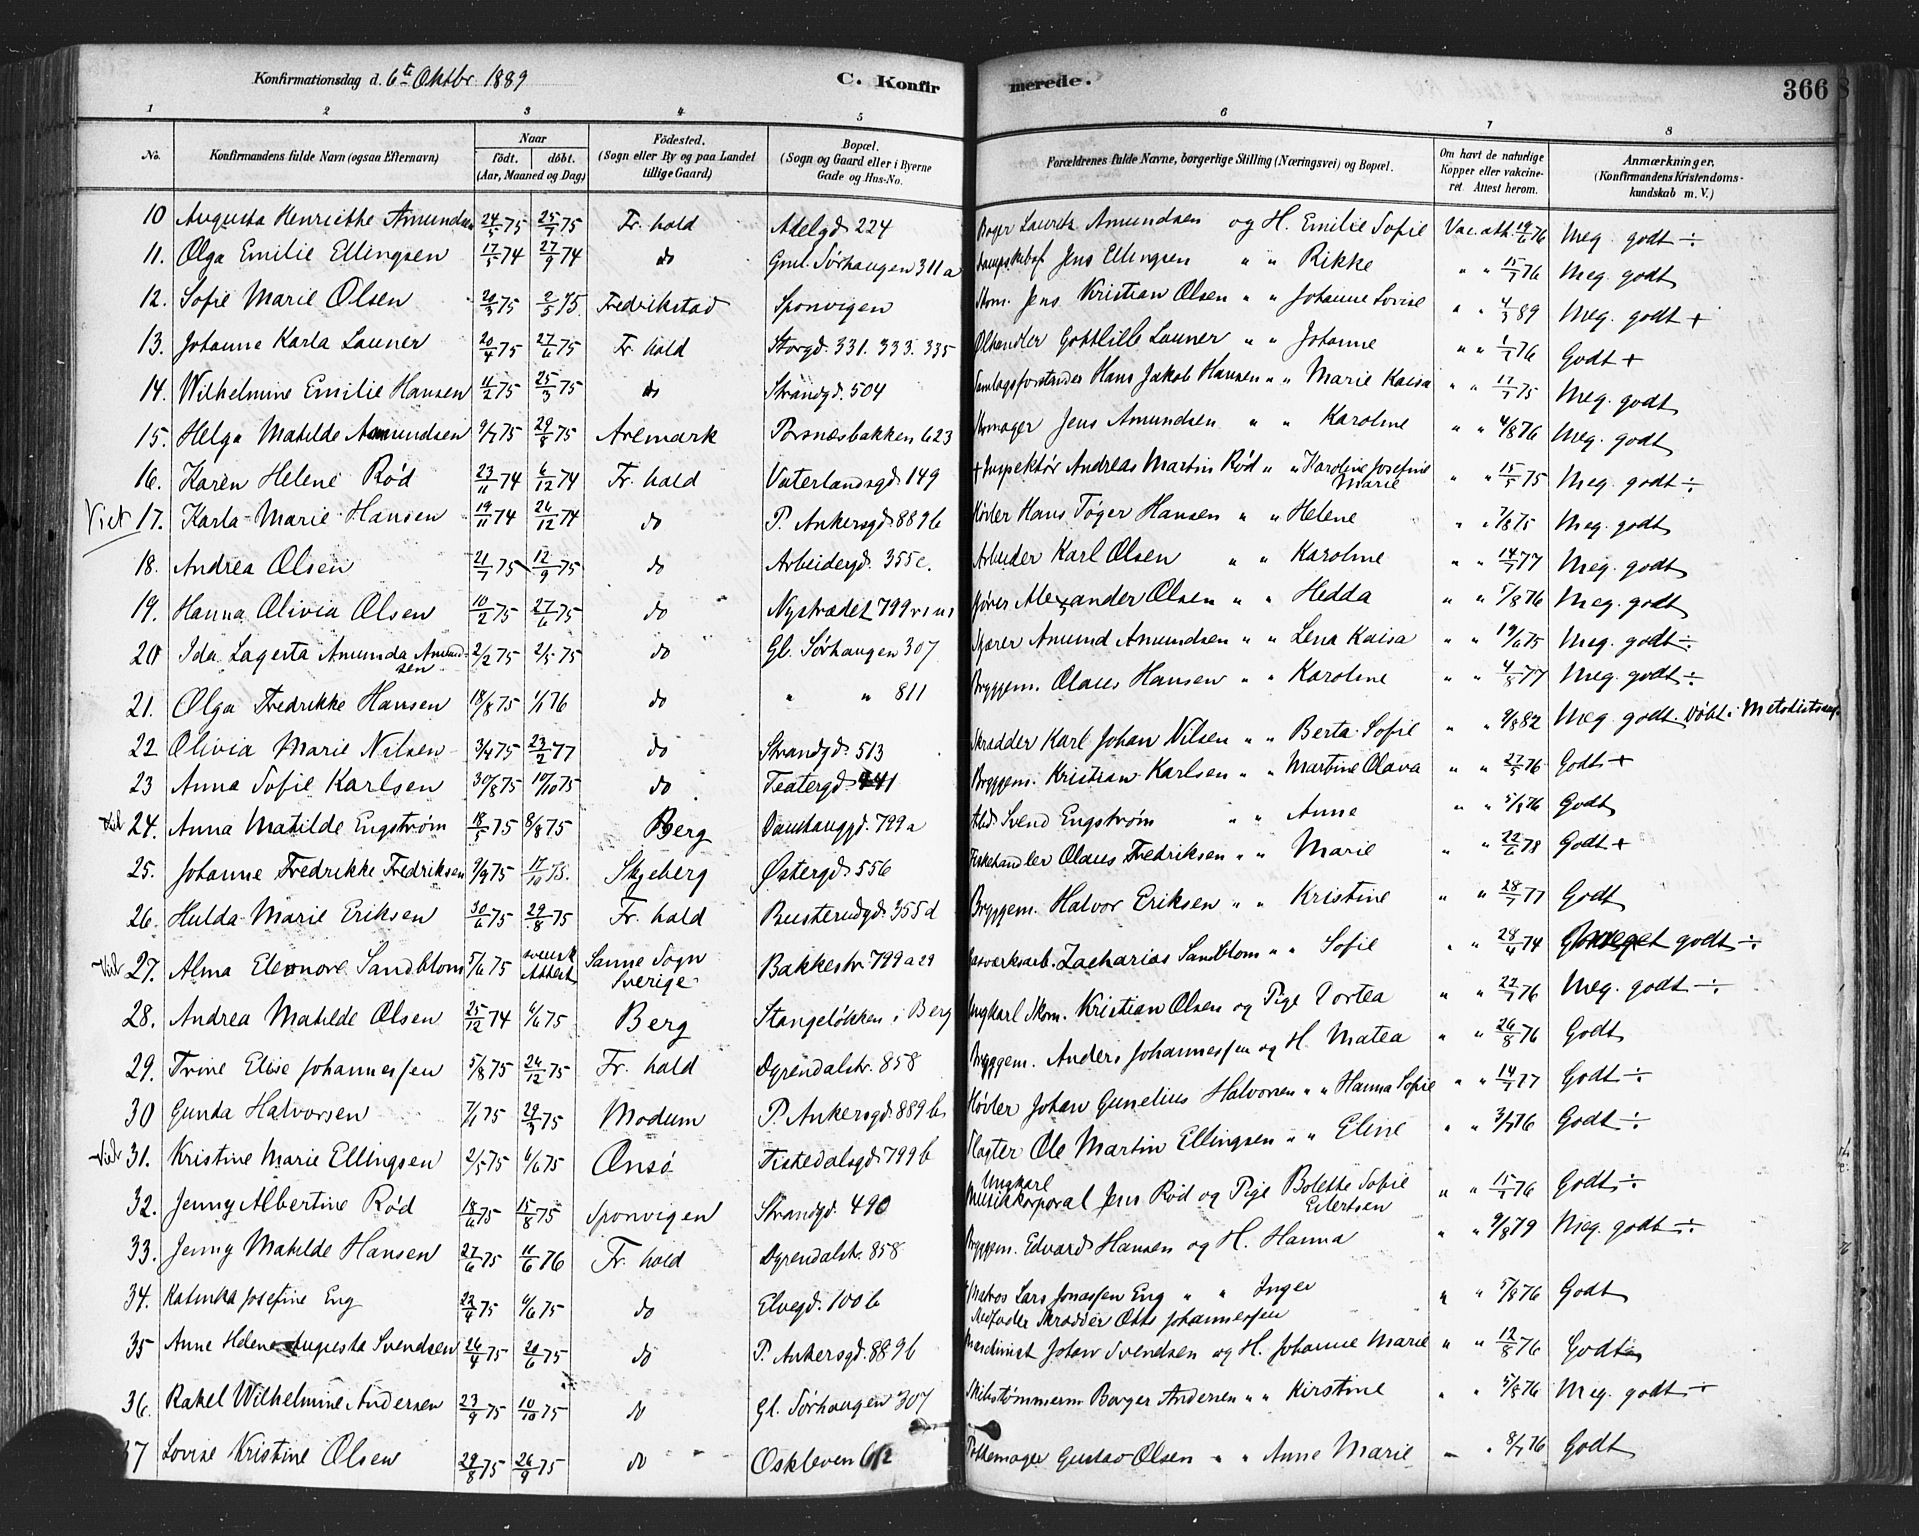 Konfirmationsdag d. 6te Oktbr. 1889 C. Konfir
merede. 366
1 2 3 4 5
6 7 8
No. Konfirmandens fulde Navn (ogsaa Efternavn) Naar født. døbt. (Aar, Maaned og Dag) Fødested. (Sogn eller By og paa Landet tillige Gaard) Bopæl. (Sogn og Gaard eller i Byerne Gade og Hus-No.
Forældrenes fulde Navne, borgerlige Stilling (Næringsvei) og Bopæl. Om havt de naturlige Kopper eller vakcineret. Attest herom. Anmærkninger, (Konfirmandens Kristendomskundskab m. V.)
10 Augusta Henriette Amundsen 24/5 75 25/7 75 Fr. hald Adelgd 224 Bager Lauritz Amundsen og H. Emilie Sofie Vac. att. 19/6 76 Meg. godt ÷
11. Olga Emilie Ellingsen 17/5 74 27/9 74 do Gml. Sørhaugen 311a Jens Ellingsen " " Rikke " " 15/7 76 Meg. godt
12. Sofie Marie Olsen 20/3 75 2/5 75. Fredrikstad Sponvigen Skom. Jens Kristian Olsen " " Johanne Lovise " " 4/3 89 Meg. godt +
13. Johanne Karla Launer 20/4 75 27/6 75 Fr. hald Storgd. 331. 333. 335 Ølhandler Gottlilb Launer " " Johanne " " 1/7 76 Godt +
14. Wilhelmine Emilie Hansen 11/2 75 25/3 75 do Strandgd. 504 Samlagsforstander Hans Jakob Hansen " " Marie Kaisa " " 17/7 75 Meg. godt
15. Helga Matilde Amundsen 9/7 75 29/8 75 Aremark Porsnesbakken 623 Jens Amundsen " " Karoline " " 4/8 76 Meg. godt
16. Karen Helene Rød 23/11 74 6/12 74 Fr. hald Vaterlandsgd 149 + Inspektør Andreas Martin Rød " " Karoline Josefine Marie " " 15/5 75 Meg. godt ÷
Viet 17. Karla Marie Hansen 19/11 74 26/12 74 do P. Ankersgd 889b Høvler Hans Tøger Hansen " " Helene " " 7/8 75 Meg. godt
18. Andrea Olsen 21/7 75 12/9 75 do Arbeidergd. 355c. Arbeider Karl Olsen " " Karoline " " 14/7 77 Meg. godt
19. Hanna Olivia Olsen 10/2 75 27/6 75 do Nystrædet 799 Kjører Alexander Olsen " " Hedda " " 5/8 76 Meg. godt
20 Ida Lagerta Amunda Amundsen 2/2 75 2/5 75 do Gl. Sørhaugen 307 Amund Amundsen " " Lena Kaisa " " 19/6 75 Meg. godt ÷
21. Olga Fredrikke Hansen 18/8 75 1/1 76 do " " 811 Bryggem. Olaus Hansen " " Karoline " " 4/8 77 Meg. godt ÷
22 Olivia Marie Nilsen 3/4 75 23/2 77 do Strandgd. 513 Skrædder Karl Johan Nilsen " " Berta Sofie " " 9/8 82 Meg. godt. Døbt i Metodistmgh.
23 Anna Sofie Karlsen 30/8 75 10/10 75 do Teatergd 441 Bryggem. Kristian Karlsen " " Martine Olava " " 27/5 76 Godt +
Vid 24. Anna Matilde Engstrøm 18/5 75 8/8 75 Berg Damhauggd. 799a Arb. Svend Engstrøm " " Anne " " 5/8 76 Godt
25. Johanne Fredrikke Fredriksen 9/9 75 17/10 75. Skjeberg Østergd 556 Fiskehandler Olaus Fredriksen " " Marie " " 22/6 78 Godt +
26. Hulda Marie Eriksen 30/6 75 29/8 75 Fr. hald Busterudgd. 355d Bryggem. Halvor Eriksen " " Kristine " " 28/7 77 Godt
Vid 27. Alma Eleonore Sandblom 5/6 75 svensk Attest Sanne Sogn Sverige Bakkestr. 799a 29 Gasværksarb. Zacharias Sandblom " " Sofie " " 28/4 74 Meget godt ÷
28. Andrea Matilde Olsen 25/12 74 6/6 75 Berg Stangeløkken i Berg Ungkarl Skom. Kristian Olsen og Pige Dortea " " 22/7 76 Meg. godt ÷
29. Trine Elise Johannessen 5/8 75 26/12 75 Fr. hald Dyrendalstr. 858 Bryggem. Anders Johannessen og H. Matea " " 26/8 76 Godt
30 Gunda Halvorsen 7/1 75 29/3 75 Modum P. Ankersgd 889b Høvler Johan Gunelius Halvorsen " " Hanna Sofie " " 14/7 77 Godt ÷
Vid 31. Kristine Marie Ellingsen 2/5 75 6/6 75 Onsø Fiskedalsgd 799b Slagter Ole Martin Ellingsen " " Eline " " 3/7 76 Godt ÷
32. Jenny Albertine Rød 18/6 75 15/8 75 Sponvigen Strandgd. 490 Ungkarl Musikkorporal Jens Rød og Pige Bolette Sofie Eilertsen " " 15/7 76 Godt ÷
33. Jenny Matilde Hansen 27/6 75 11/6 76 Fr. hald Dyrendalstr. 858 Bryggem. Edvard Hansen og H. Hanna " " 9/8 79 Meg. godt ÷
34. Katinka Josefine Eng 22/4 75 6/6 75 do Elvegd. 100b Matros Lars Jonassen Eng " " Inger " " 5/8 76 Godt
Stedfader Skrædder Otto Johannessen
35 Anne Helene Augusta Svendsen 26/4 75 20/6 75 do P. Ankersgd. 889b Maschinist Johan Svendsen og H. Johanne Marie " " 12/8 76 Godt
36. Rakel Wilhelmine Andersen 23/9 75 10/10 75 do Gl. Sørhaugen 307 Skibstømmerm Borger Andersen " " Kirstine " " 5/8 76 Meg. godt ÷
37 Lovise Kristine Olsen 29/8 75 26/9 75 do Oskleven 612 Gustav Olsen " " Anne Marie " " 8/7 76 Godt